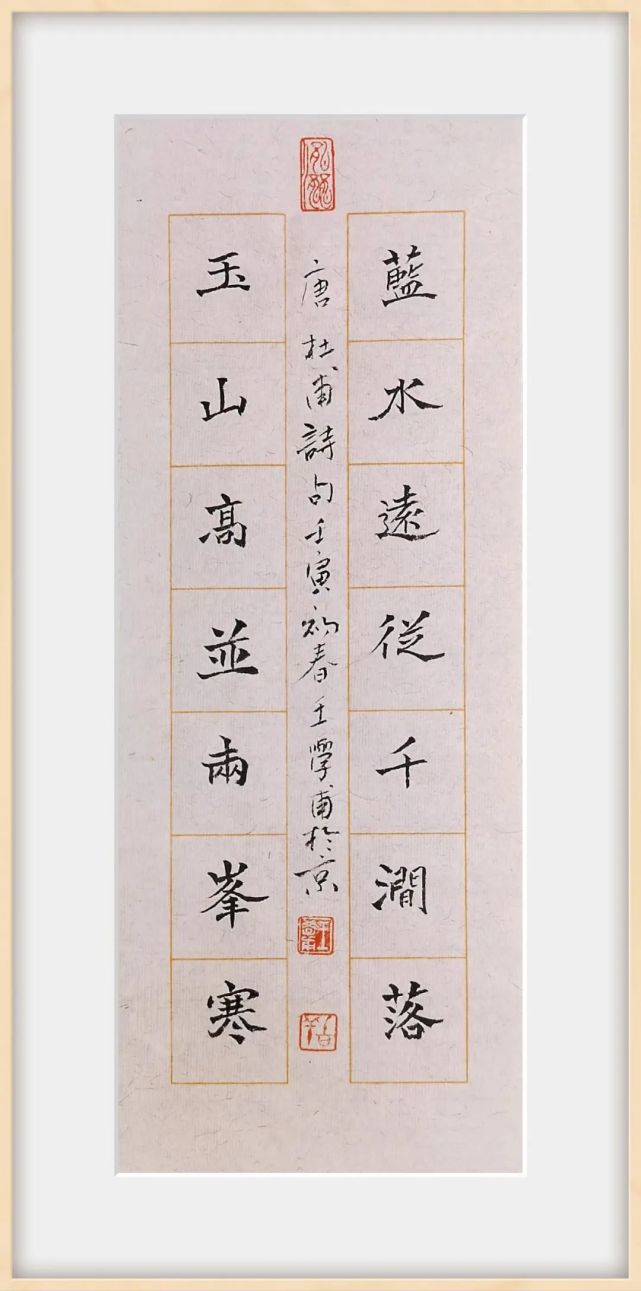 藍水遠従千澗落
玉山髙並兩峯寒
唐杜甫詩句壬寅初春王學甫於京